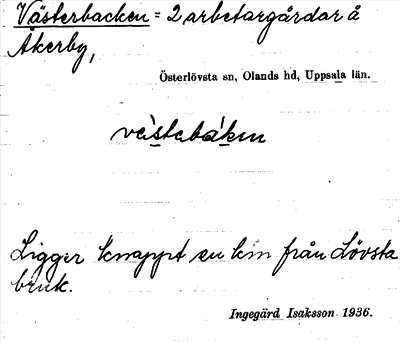 Västerbacken = 2 arbetargårdar å
Åkerby,
Österlövsta sn, Olands hd, Uppsala län.
Ligger knappt en km från Lövsta
bruk.
Ingegärd Isaksson 1936.